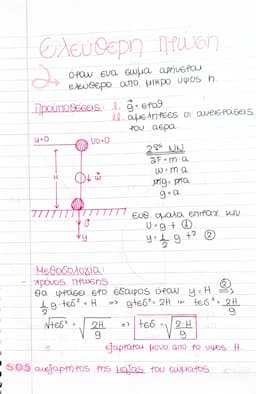 Ελεύθερη πτώση
όταν ένα σώμα αφήνεται
ελεύθερο από μικρό ύψος h.
Προϋποθέσεις: i. g = σταθ
ii. αμελητέες οι αντιστάσεις
του αέρα
u=0
υο=0
H
w
υ
y
2ος ΝΝ
ΣF = m·a
w = m·a
mg = ma
g = a
ευθ. ομαλά επιταχ. κιν
υ = g t ①
y = 1/2 g t² ②
Μεθοδολογία:
χρόνος πτώσης
θα φτάσει στο έδαφος όταν y=H ②⇒
1/2 g tεδ² = H => gtεδ² = 2H => tεδ² = 2H/g
√tεδ² = √2H/g => tεδ = √2·H/g
εξαρτάται μόνο από το ύψος H.
SOS ανεξάρτητος της μάζας του σώματος